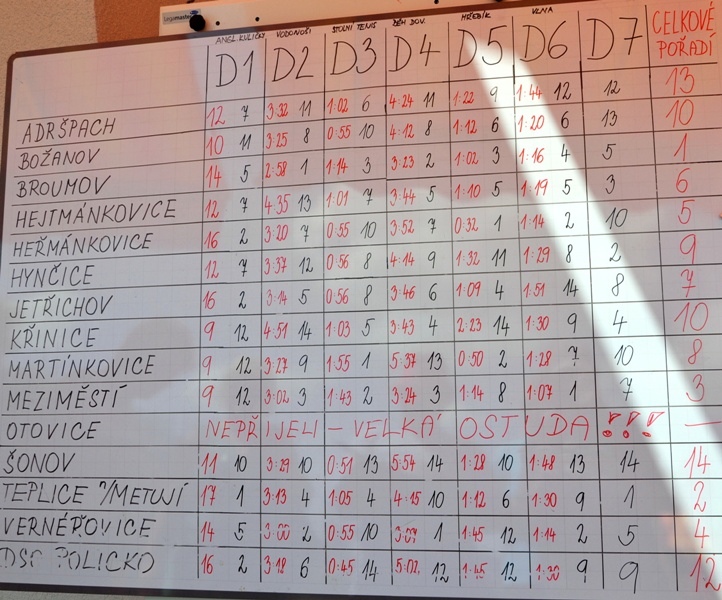 Legamaster
ANGL. KULIČKY VODONOŠI STOLNÍ TENIS ŽEN DOV. HŘEBÍK VLNA
D1 D2 D3 D4 D5 D6 D7 CELKOVÉ POŘADÍ
ADRŠPACH 12 7 3:32 11 1:02 6 4:24 11 1:22 9 1:44 12 12 13
BOŽANOV 10 11 3:25 8 0:55 10 4:12 8 1:12 6 1:20 6 13 10
BROUMOV 14 5 2:58 1 1:14 3 3:23 2 1:02 3 1:16 4 5 1
HEJTMÁNKOVICE 12 7 4:35 13 1:01 7 3:44 5 1:10 5 1:19 5 3 6
HEŘMÁNKOVICE 16 2 3:20 7 0:55 10 3:52 7 0:32 1 1:14 2 10 5
HYNČICE 12 7 3:37 12 0:56 8 4:14 9 1:32 11 1:29 8 2 9
JETŘICHOV 16 2 3:14 5 0:56 8 3:46 6 1:09 4 1:51 14 8 7
KŘINICE 9 12 4:51 14 1:03 5 3:43 4 2:23 14 1:30 9 4 10
MARTÍNKOVICE 9 12 3:27 9 1:55 1 5:37 13 0:50 2 1:28 7 10 8
MEZIMĚSTÍ 9 12 3:02 3 1:43 2 3:24 3 1:14 8 1:07 1 7 3
OTOVICE NEPŘIJELI - VELKÁ OSTUDA !!! —
ŠONOV 11 10 3:29 10 0:51 13 5:54 14 1:28 10 1:48 13 14 14
TEPLICE n/METUJÍ 17 1 3:13 4 1:05 4 4:15 10 1:12 6 1:30 9 1 2
VERNÉŘOVICE 14 5 3:00 2 0:55 10 3:09 1 1:45 12 1:14 2 5 4
DSO POLICKO 16 2 3:18 6 0:45 14 5:02 12 1:45 12 1:30 9 9 12